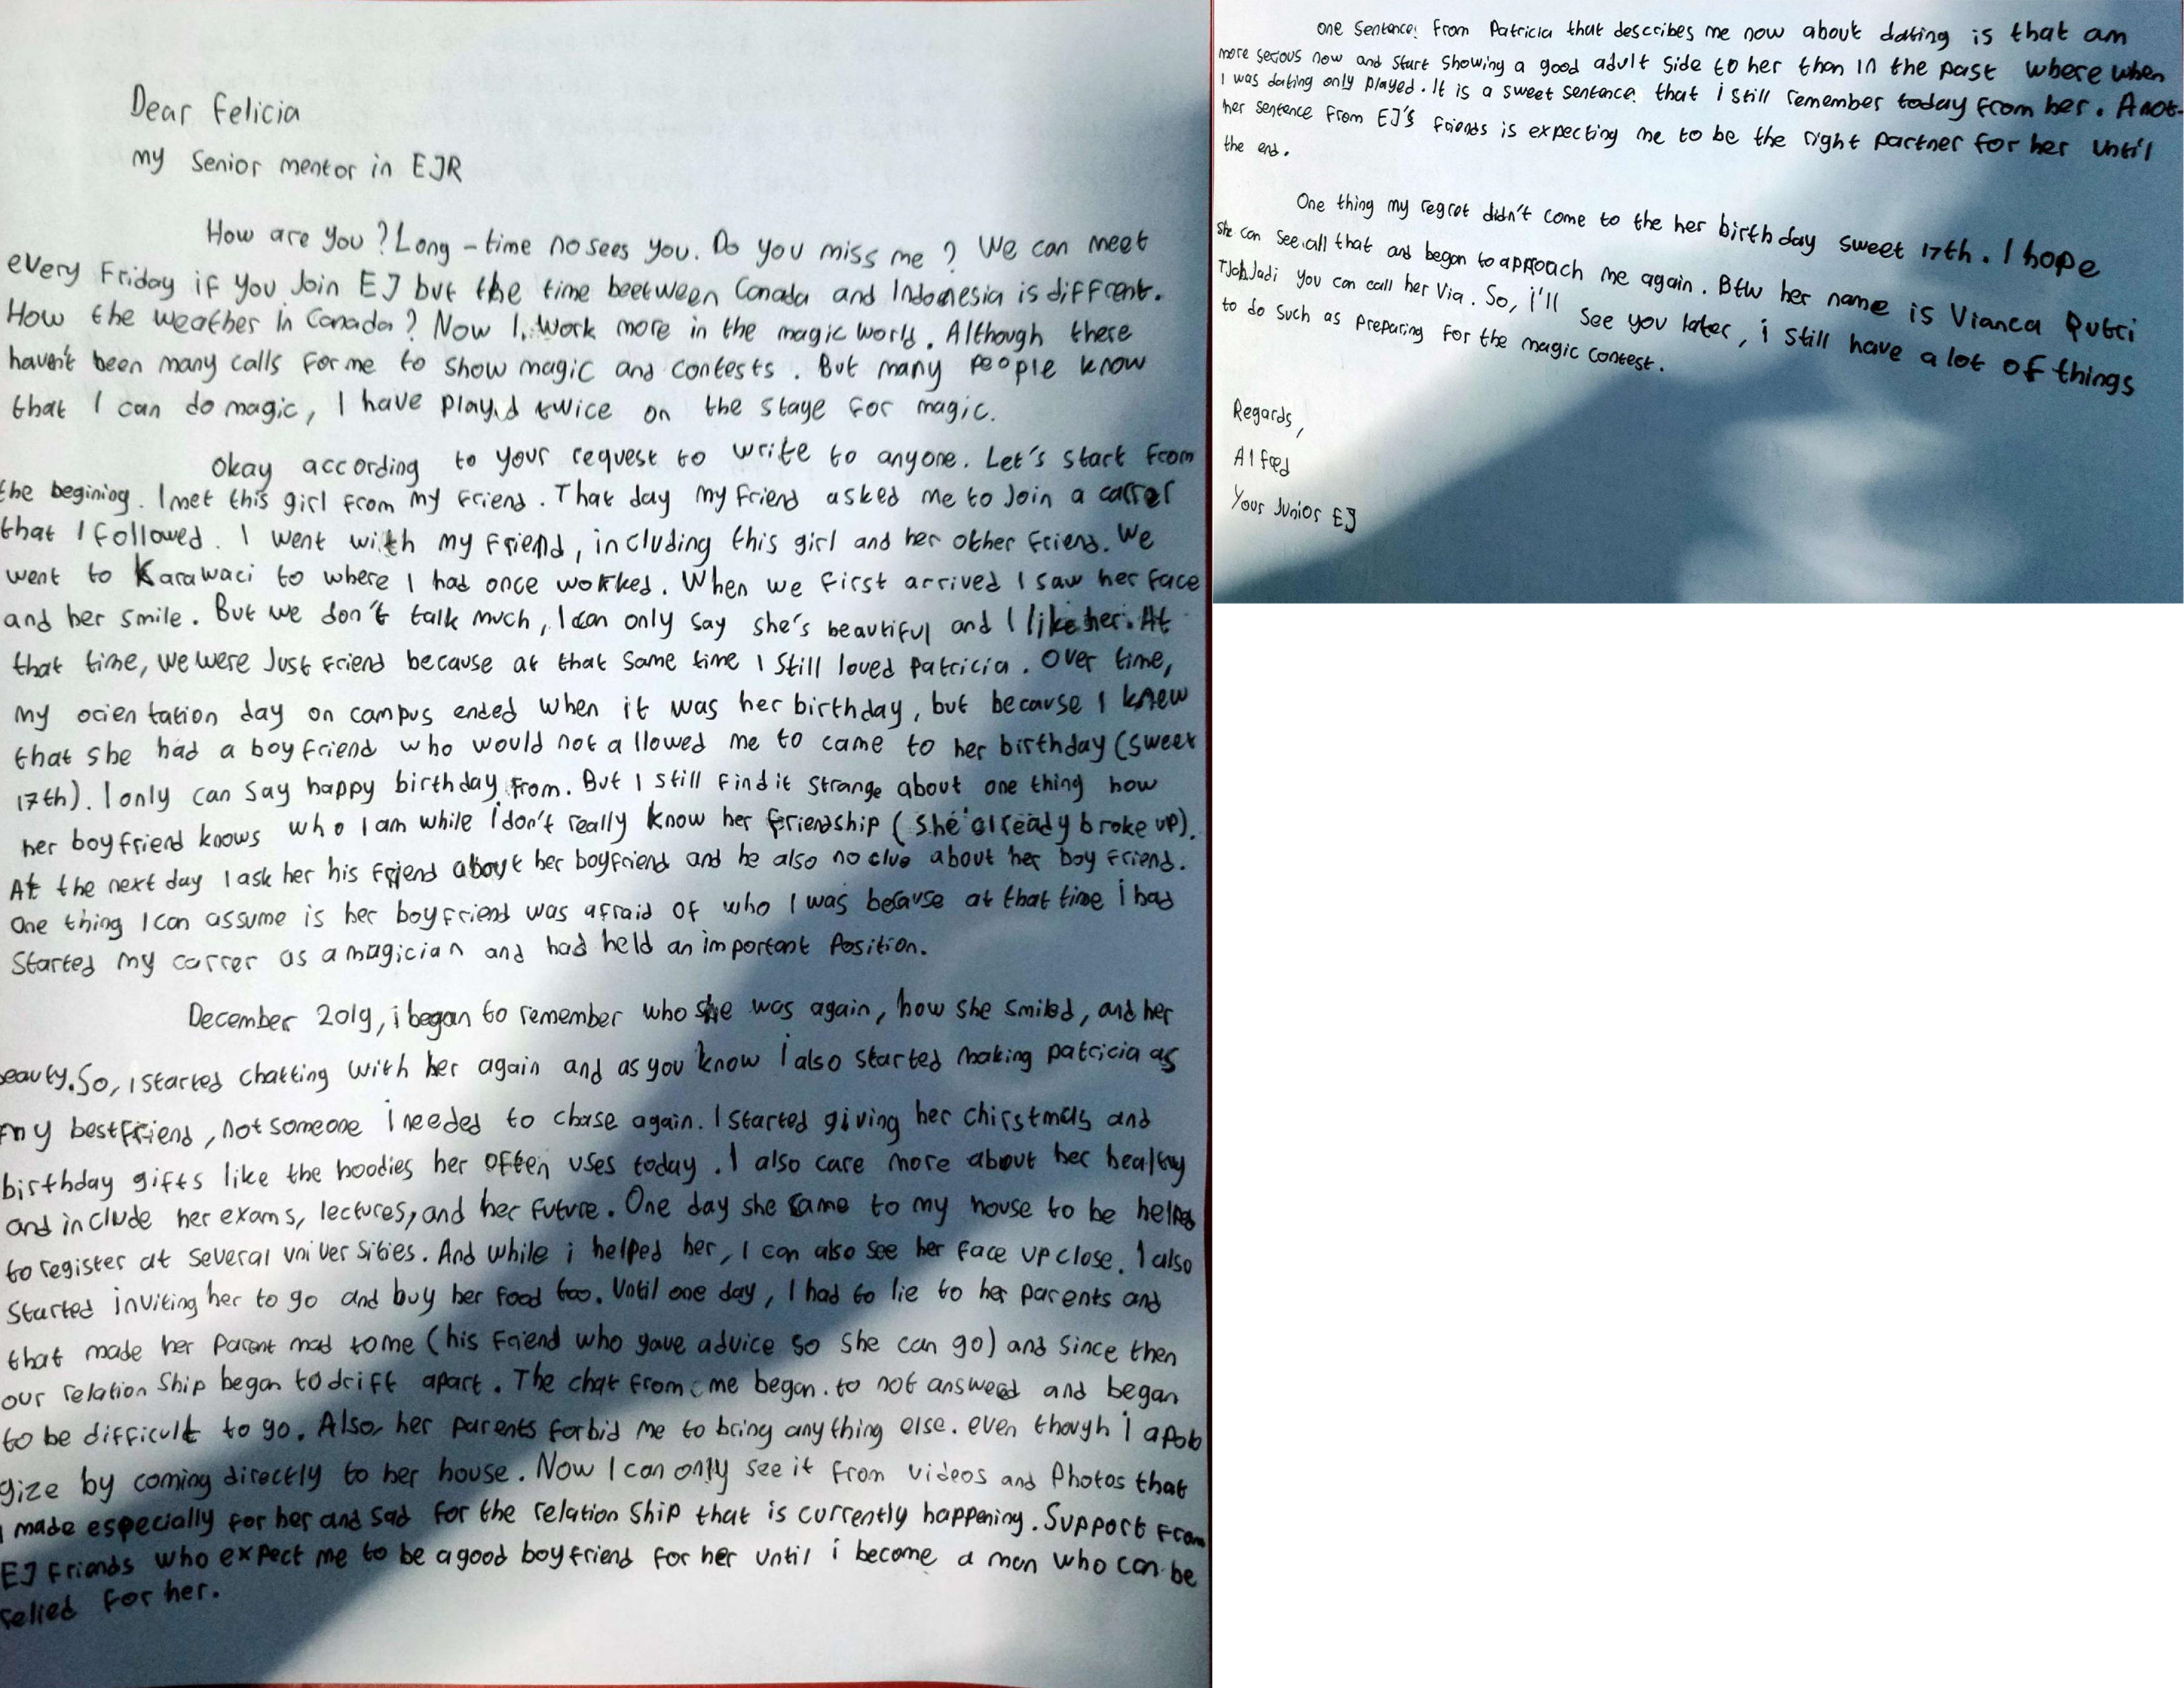 Dear Felicia
my Senior mentor in EJR
How are you ? Long - time no sees you. Do you miss me ? We can meet
every Friday if you Join EJ but the time beetween Canada and Indonesia is diffrent.
How the weather in Canada ? Now I work more in the magic world. Although there
haven't been many calls for me to show magic and contests. But many people know
that I can do magic, I have played twice on the stage for magic.
Okay according to your request to write to anyone. Let's start from
the begining. I met this girl from my friend. That day my friend asked me to Join a carrer
that I followed. I went with my friend, including this girl and her other friend. We
went to Karawaci to where I had once worked. When we first arrived I saw her face
and her smile. But we don't talk much, I can only say she's beautiful and I like her. At
that time, we were Just friend because at that same time I still loved Patricia. Over time,
my orientation day on campus ended when it was her birthday, but because I knew
that she had a boyfriend who would not allowed me to came to her birthday (sweet
17th). I only can say happy birthday from. But I still find it strange about one thing how
her boyfriend knows who I am while I don't really know her friendship (she already broke up).
At the next day I ask her his friend about her boyfriend and he also no clue about her boy friend.
One thing I can assume is her boyfriend was afraid of who I was because at that time i had
Started my carrer as a magician and had held an important Position.
December 2019, i began to remember who she was again, how she smiled, and her
beauty. So, i started chatting with her again and as you know i also started making patricia as
my bestfriend, not someone i needed to chase again. I started giving her chirstmas and
birthday gifts like the hoodies her often uses today. I also care more about her healty
and include her exams, lectures, and her future. One day she came to my house to be helped
to register at several universities. And while i helped her, I can also see her face up close. I also
Started inviting her to go and buy her food too. Until one day, I had to lie to her parents and
that made her Parent mad to me (his friend who gave advice so she can go) and since then
our relation Ship began to drift apart. The chat from me began to not answered and began
to be difficult to go. Also, her parents forbid me to bring anything else. even though I apolo
gize by coming directly to her house. Now I can only see it from videos and Photos that
I made especially for her and sad for the relation ship that is currently happening. Support from
EJ Friends who expect me to be a good boyfriend for her until i become a man who can be
relied for her.
one Sentence from Patricia that describes me now about dating is that am
more serious now and start showing a good adult side to her than in the past where when
I was dating only played. It is a sweet sentence that i still remember today from her. Anot-
her sentence from EJ's friends is expecting me to be the right partner for her until
the end.
One thing my regret didn't come to the her birthday sweet 17th. I hope
she can see all that and began to approach me again. Btw her name is Vianca Putri
TJahJadi you can call her Via. So, i'll see you later, i still have a lot of things
to do such as preparing for the magic contest.
Regards,
Alfred
Your Junior EJ